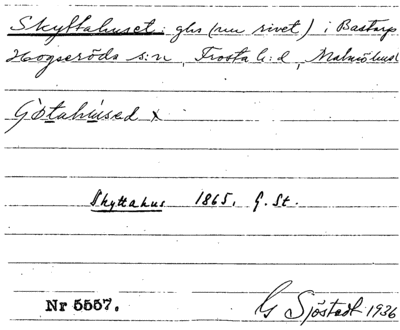 Skyttahuset: ghs (nu rivet) i Bastarp
Hogseröds s:n, Frosta h:d, Malmöhus l
Götahused x
Skyttahus 1865. G. St.
Nr 5557. G Sjöstedt 1936